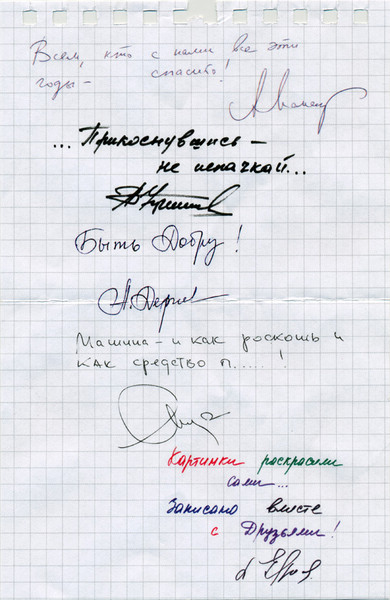 Всем, кто с нами все эти
годы – спасибо!
... Прикоснувшись –
не испачкай...
Быть Добру!
Машина – и как роскошь и
как средство п.....!
Картинки раскрасили
сами...
Записано вместе
с Друзьями!